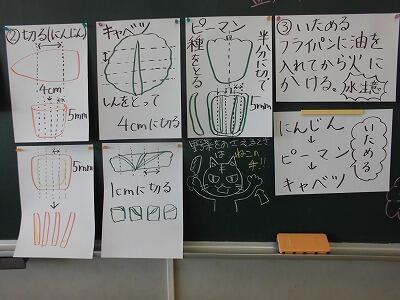 ②切る(にんじん)
4cm
5mm
5mm
キャベツ
しんをとって
4cmに切る
1cmに切る
ピーマン
半分に切って
種をとる
5mm
野菜をおさえるときは
ねこの
手!!
③いためる
フライパンに油を
入れてから火に
かける。
水注意
にんじん
↓
ピーマン
↓
キャベツ
いためる